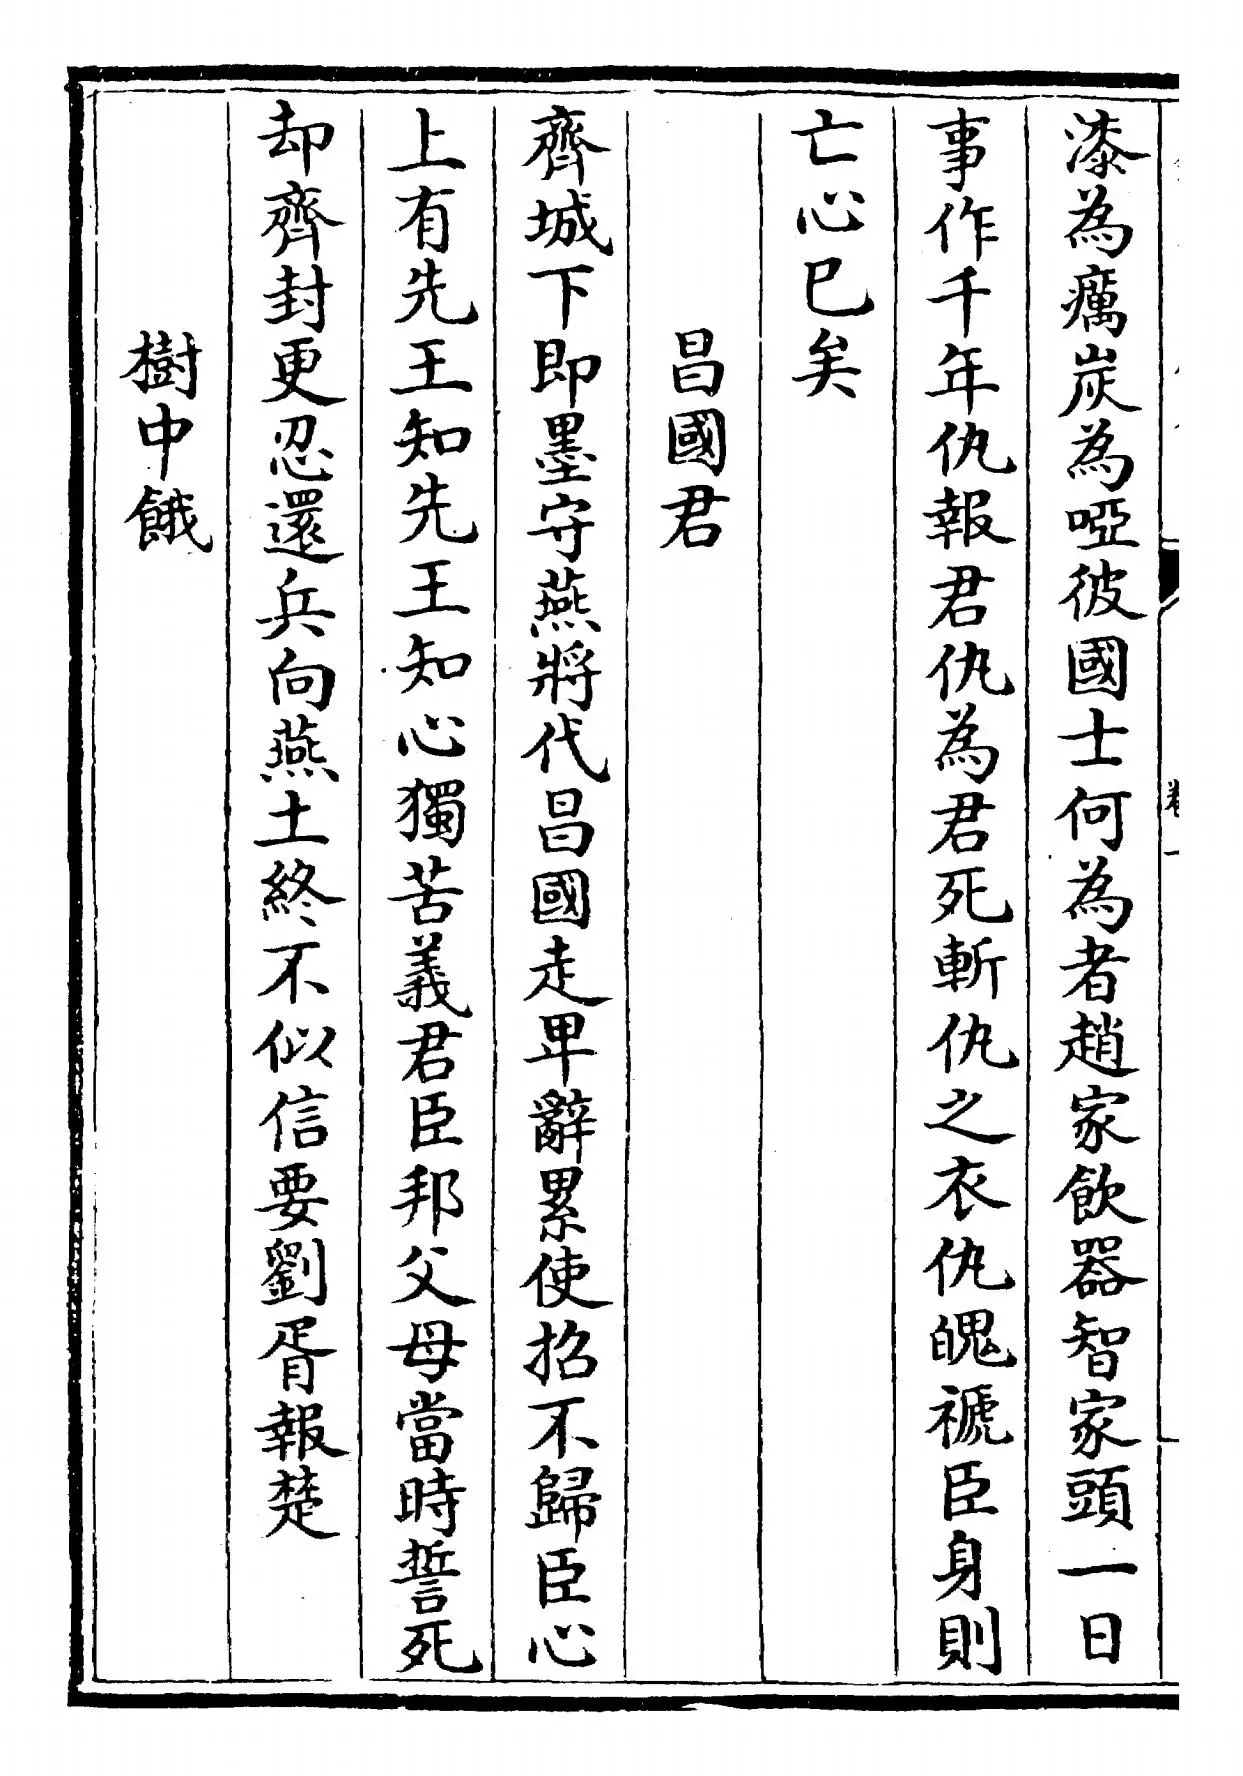 漆為癘炭為啞彼國士何為者趙家飲器智家頭一日
事作千年仇報君仇為君死斬仇之衣仇魄褫臣身則
亡心已矣
昌國君
齊城下即墨守燕將代昌國走卑辭累使招不歸臣心
上有先王知先王知心獨苦義君臣邦父母當時誓死
却齊封更忍還兵向燕土終不似信要劉胥報楚
樹中餓